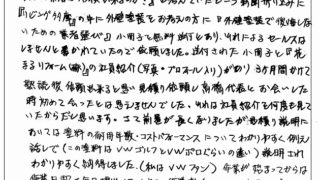 『リビング紗屋』の中に外壁塗装をお考えの方に『外壁塗装で後悔しな
いための業者選び』小冊子と無料送付とあり、それによるセールスは
しませんと書かれていたので依頼しました。送付された小冊子と『花
まるリフォーム(株)』の社員紹介(写真・プロフィール入り)があり3ヵ月間かけて
熟読後依頼を決めると思い見積り依頼し高橋代表とお会いした
時初めて会ったとは思えませんでした。それは社員紹介を何度も見てい
たからだと思います。さて前置が長くなりましたが見積り説明
においては塗料の耐用年数・コストパフォーマンスについてわかりやすく例え
話しで(この塗料はVWゴルフとVWポロぐらいの違い)説明され
わかりやすく納得しました。(私はVWファン) 作業が始まってからは